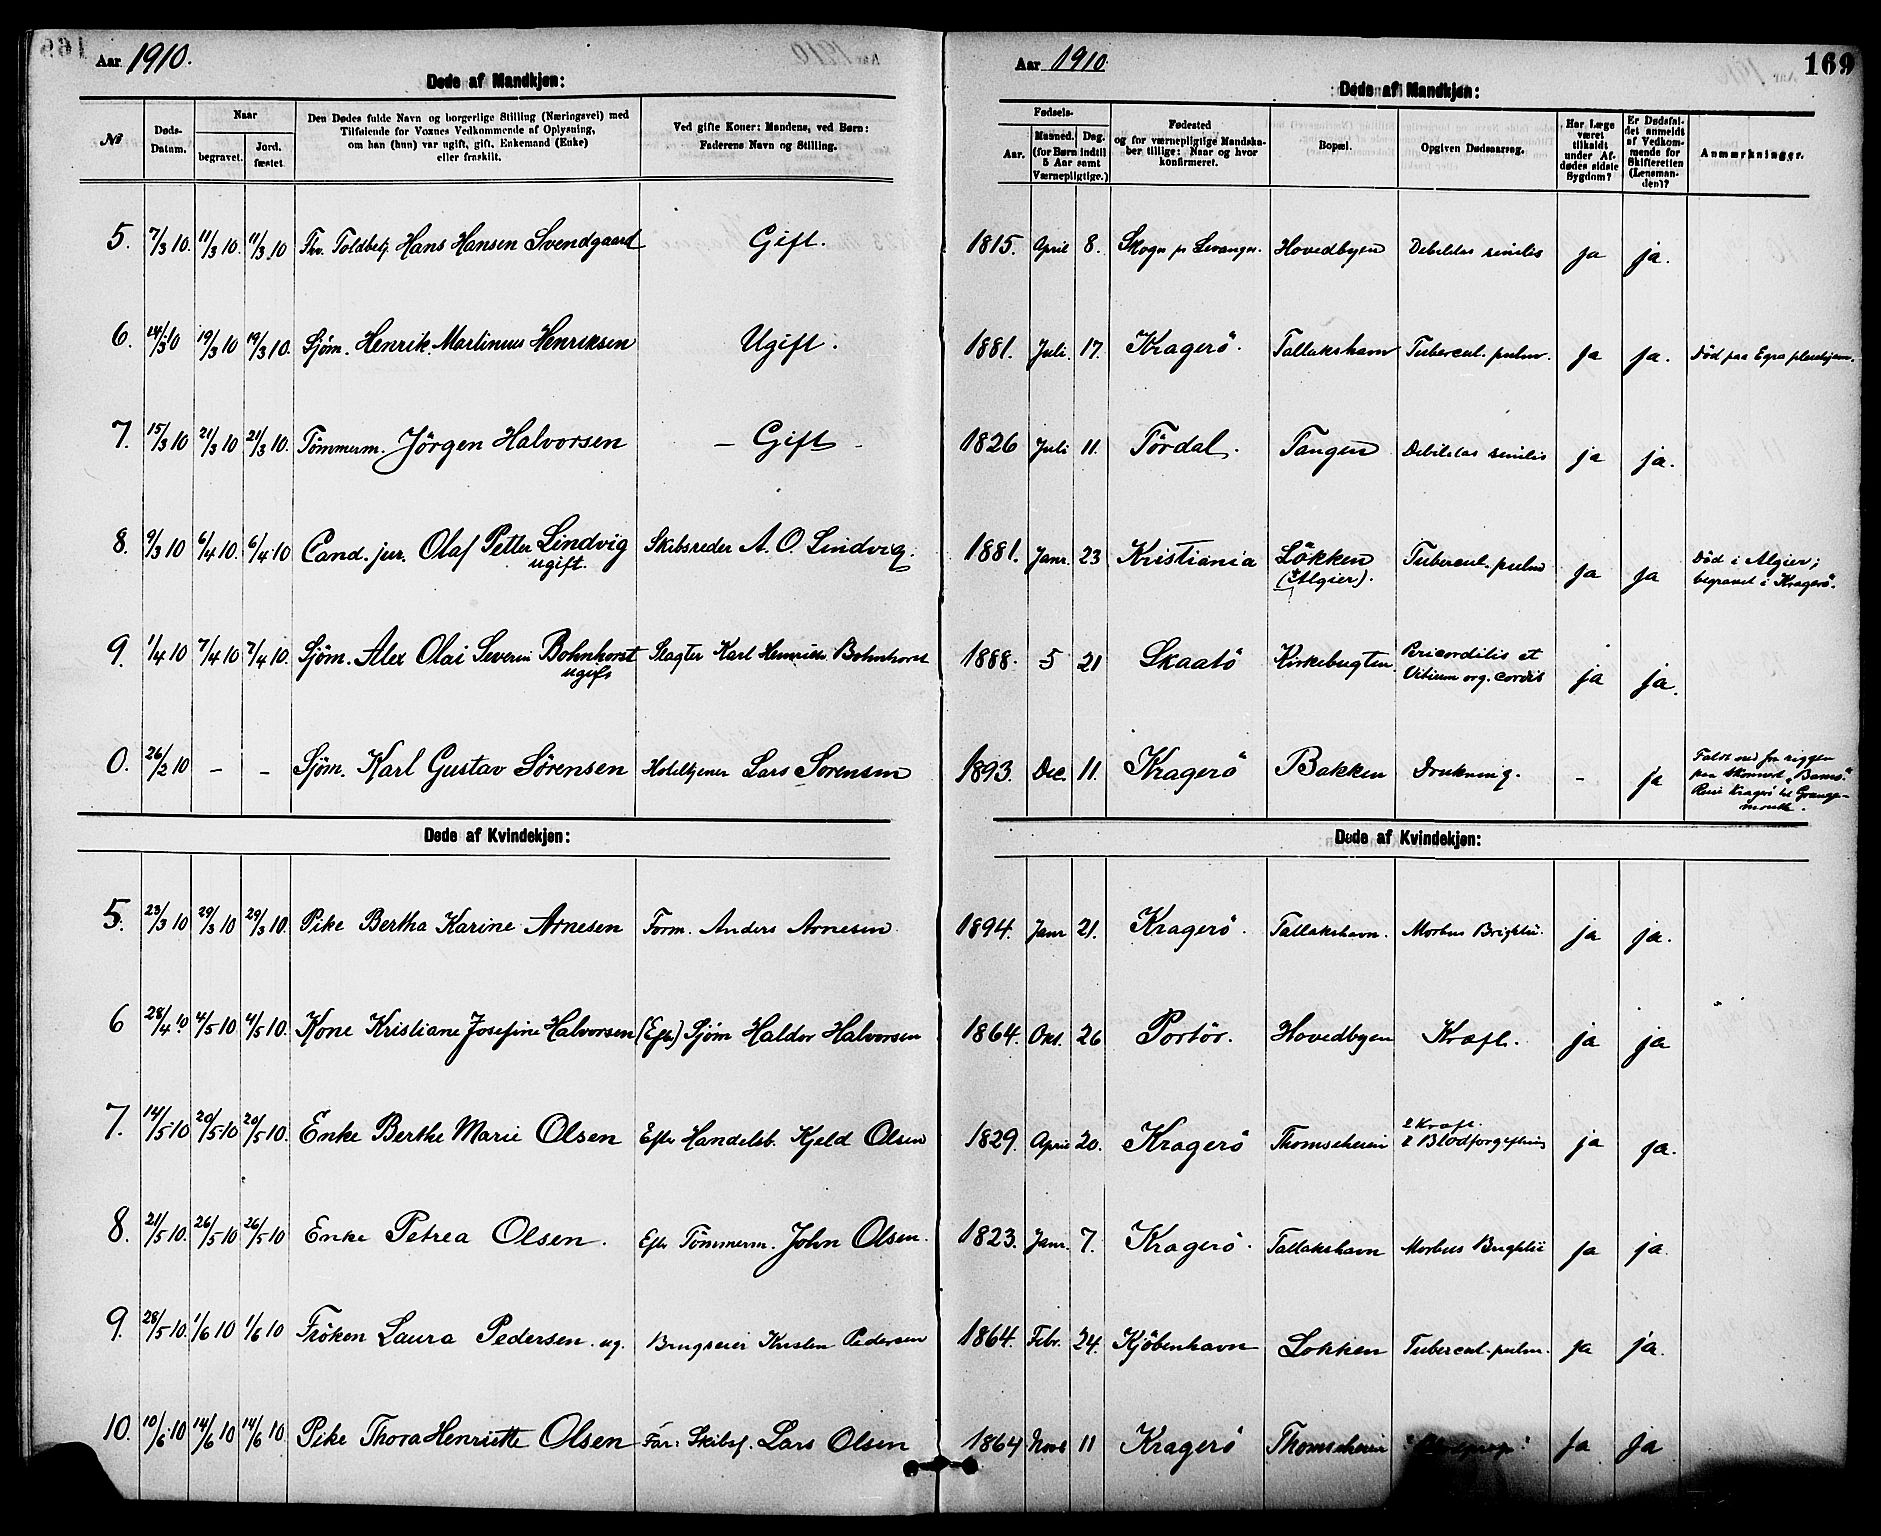 Aar 1910.
Døde af Mandkjøn:
№
Døds-Datum.
Naar
begravet.
Jord.fæstet.
Den Dødes fulde Navn og borgerlige Stilling (Næringsvei) med
Tilføiende for Voxnes Vedkommende af Oplysning,
om han (hun) var ugift, gift, Enkemand (Enke)
eller fraskilt.
Ved gifte Koner: Mandens, ved Børn:
Faderens Navn og Stilling.
Aar 1910.
169
Døde af Mandkjøn:
Fødsels-
Aar.
Maaned. Dag.
(for Børn indtil
5 Aar samt
Værnepligtige.)
Fødested
og for værnepligtige Mandska-
ber tillige: Naar og hvor
konfirmeret.
Bopæl.
Opgiven Dødsaarsag.
Har Læge
været
tilkaldt
under Af-
dødes sidste
Sygdom?
Er Dødsfal-
det anmeldt
af Vedkom-
mende for
Skifteretten
(Lensman-
den)?
Anmærkninger.
5. 7/3 10. 11/3 10. 11/3 10 Fhv. Toldbetj. Hans Hansen Svendgaard Gift. 1815. April 8. Skogn pr Levanger. Hovedbyen Debilitas senilis ja ja.
6. 14/3 10 19/3 10 19/3 10. Sjøm. Henrik Martinius Henriksen Ugift. 1881. Juli 17. Kragerö. Tallakshavn Tubercul. pulm. ja ja. Død paa Egra pleiehjem.
7. 15/3 10 21/3 10 21/3 10. Tömmerm. Jörgen Halvorsen – Gift – 1826 Juli 11. Tördal. Tangen Debilitas senilis ja ja.
8. 9/3 10 6/4 10. 6/4 10 Cand. jur. Olaf Petter Lindvig Skibsreder A. O. Lindvig. 1881. Janr. 23 Kristiania Lökken Tubercul. pulm ja ja Död i Algier;
ugift. († Algier). begravet i Kragerö.
9. 1/4 10 7/4 10 7/4 10. Sjöm. Alex Olai Severin Bohnhorst Slagter Karl Heinrich Bohnhorst 1888. 5 21 Skaatö Kirkebugten. Pericarditis et ja ja.
ugift Vitium org. cordis
0. 26/2 10 – – Sjöm. Karl Gustav Sörensen Hoteltjener Lars Sorensen 1893. Dec. 11. Kragerö Bakken Drukning. – ja Faldt ned fra riggen
paa skonnert
Reise Kragerö til Grange-
mouth.
Døde af Kvindekjøn:
Døde af Kvindekjøn:
5. 23/3 10 29/3 10 29/3 10. Pike Bertha Karine Arnesen Form. Anders Arnesen. 1894. Janr 21. Kragerö. Tallakshavn. Morbus Brightii. ja ja.
6 28/4 10 4/5 10 4/5 10. Kone Kristiane Josefine Halvorsen (Eft.) Sjöm Haldor Halvorsen 1864. Okt. 26 Portör. Hovedbyen Kræft. ja ja
7. 14/5 10 20/5 10 20/5 10. Enke Berthe Marie Olsen Efter Handelsb. Kjeld Olsen 1829. April 20. Kragerö Thomesheien Kræft. ja ja.
Blodforgiftning
8. 21/5 10. 26/5 10 26/5 10 Enke Petrea Olsen. Efter Tömmerm. John Olsen. 1823. Janr. 7. Kragerö. Tallakshavn Morbus Brightii ja ja.
9. 28/5 10. 1/6 10 1/6 10 Fröken Laura Pedersen. ug. Brugseier Kristen Pedersen 1864. Febr. 24. Kjöbenhavn Lokken Tubercul. pulm. ja ja.
10. 10/6 10 14/6 10 14/6 10 Pike Thora Henriette Olsen Far: Skibsf. Lars Olsen 1864 Novb 11 Kragerö Thomesheien ja ja